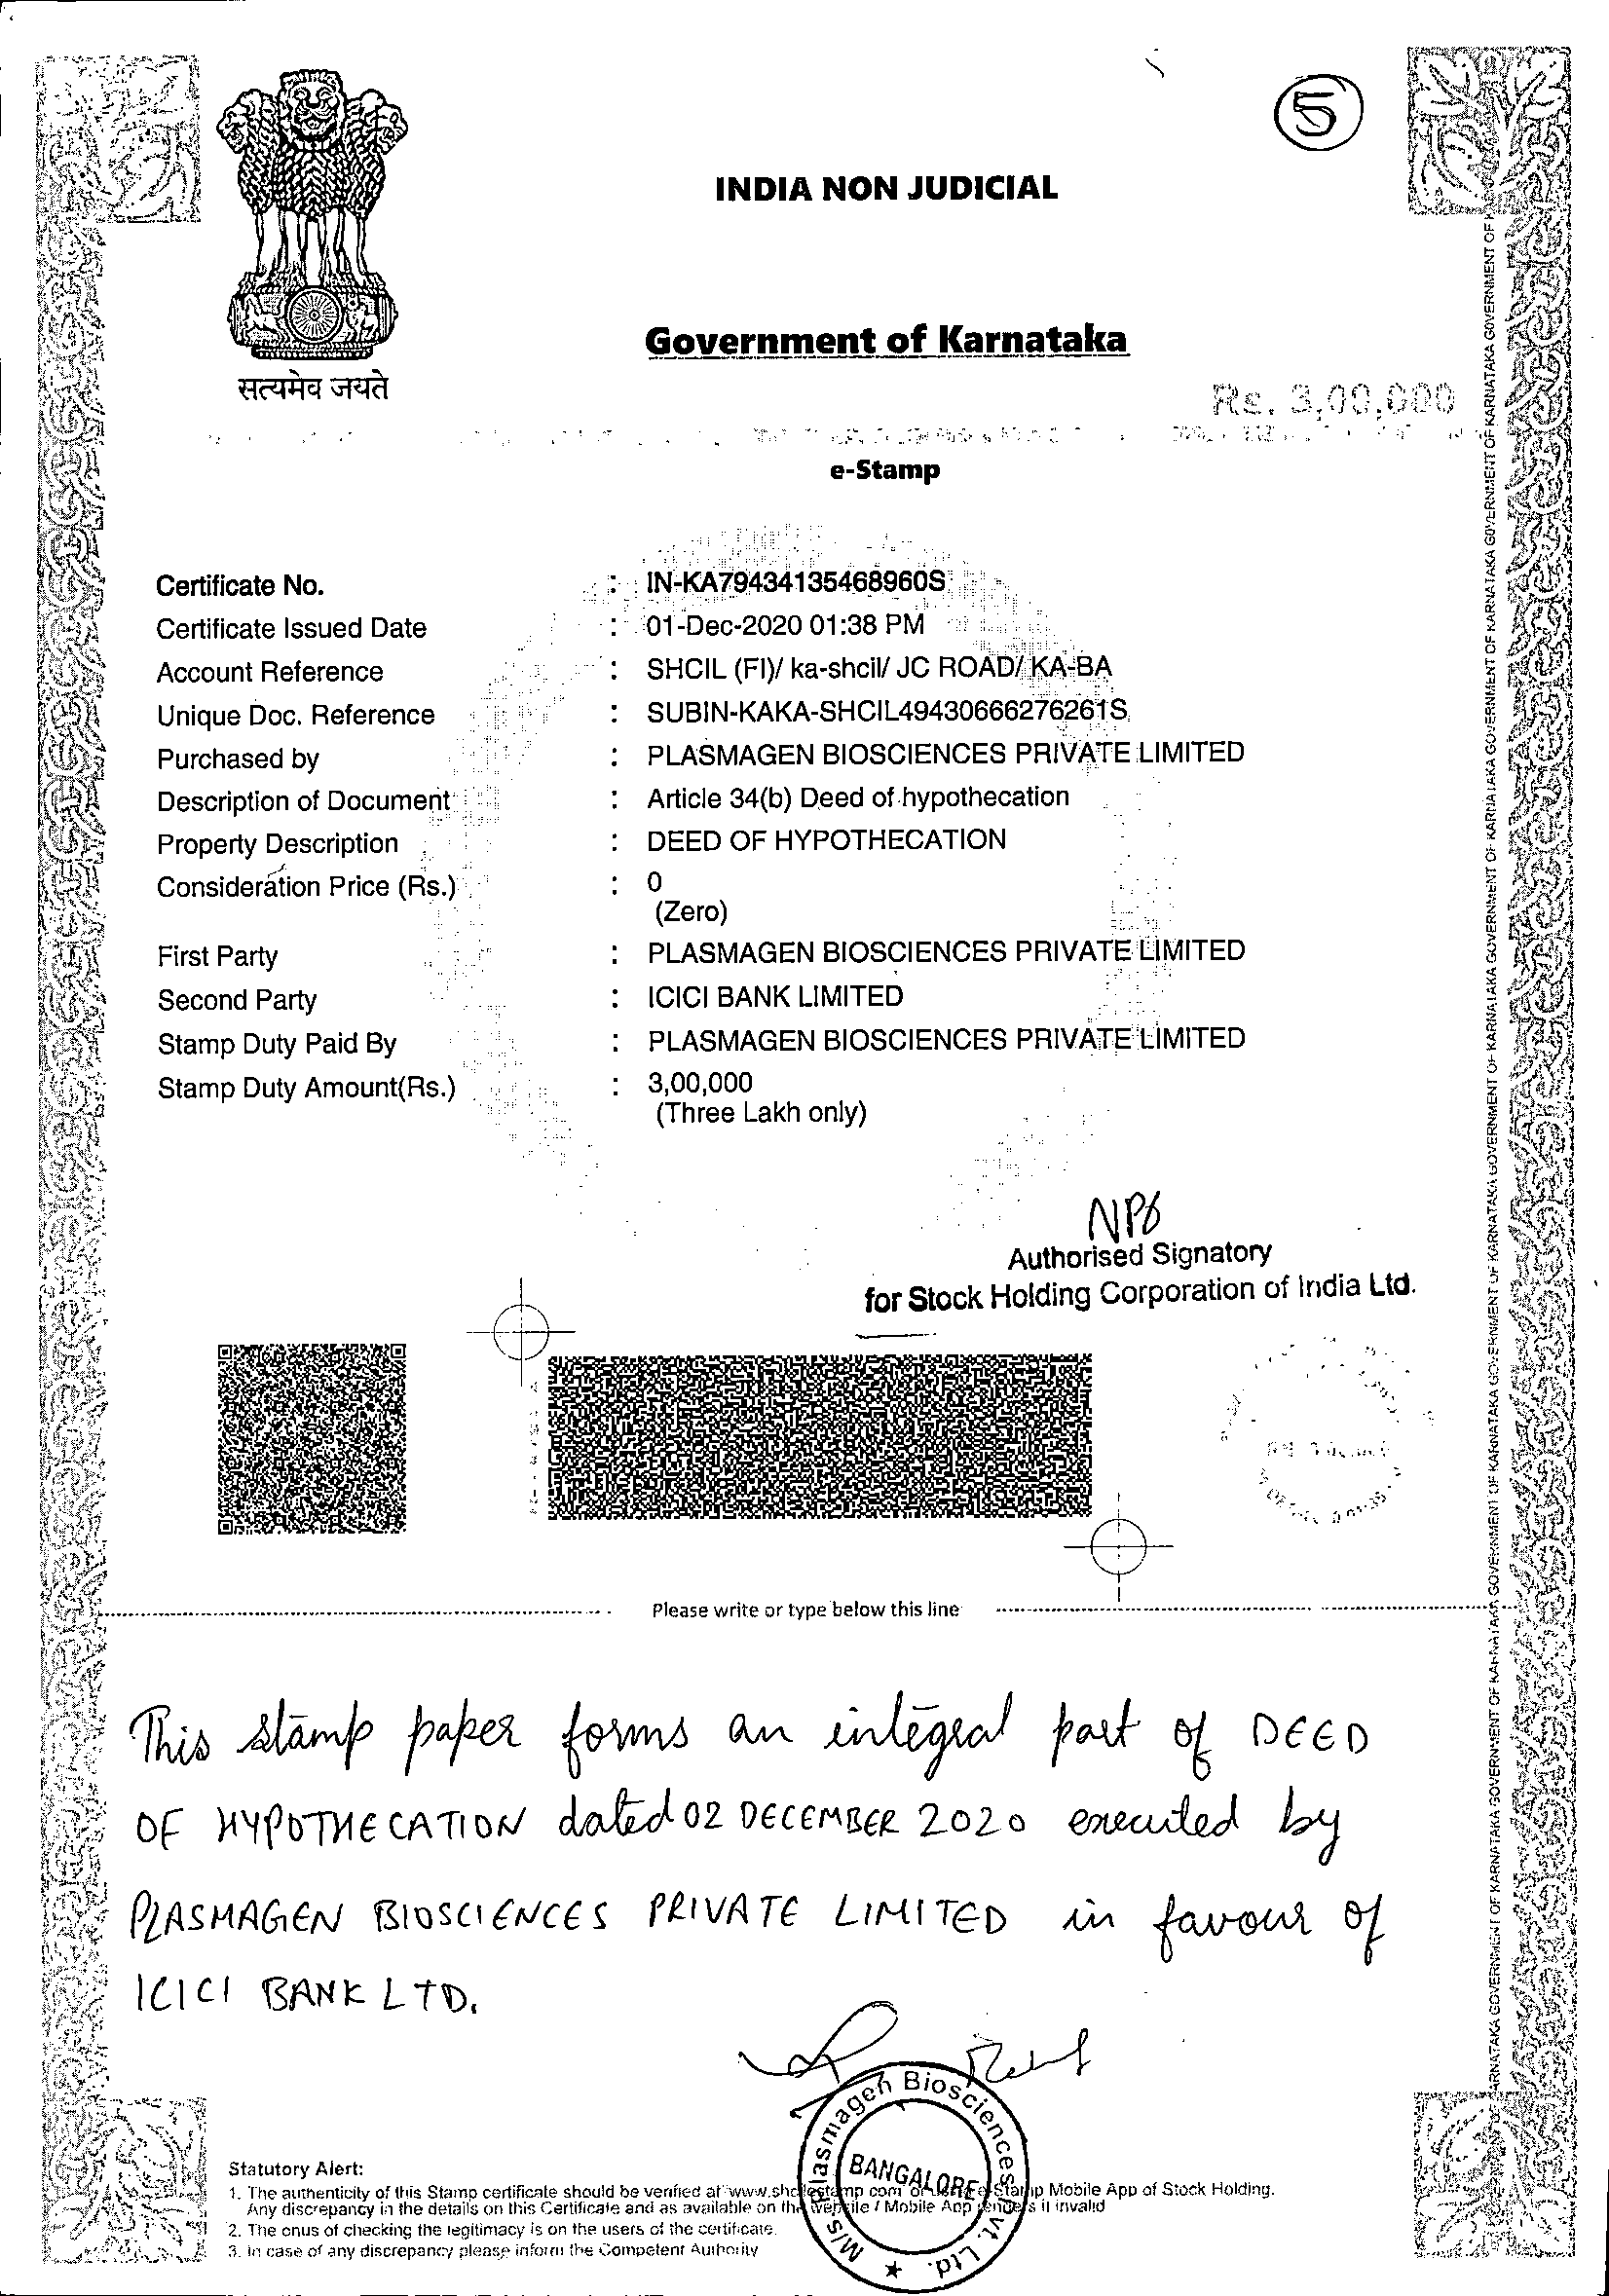 5
INDIA NON JUDICIAL
Government of Karnataka
सत्यमेव जयते
Rs. 3,00,000
e-Stamp
Certificate No. : IN-KA79434135468960S
Certificate Issued Date : 01-Dec-2020 01:38 PM
Account Reference : SHCIL (FI)/ ka-shcil/ JC ROAD/ KA-BA
Unique Doc. Reference : SUBIN-KAKA-SHCIL49430666276261S
Purchased by : PLASMAGEN BIOSCIENCES PRIVATE LIMITED
Description of Document : Article 34(b) Deed of hypothecation
Property Description : DEED OF HYPOTHECATION
Consideration Price (Rs.) : 0
(Zero)
First Party : PLASMAGEN BIOSCIENCES PRIVATE LIMITED
Second Party : ICICI BANK LIMITED
Stamp Duty Paid By : PLASMAGEN BIOSCIENCES PRIVATE LIMITED
Stamp Duty Amount(Rs.) : 3,00,000
(Three Lakh only)
Authorised Signatory
for Stock Holding Corporation of India Ltd.
Please write or type below this line
This stamp paper forms an integral part of DEED
OF HYPOTHECATION dated 02 DECEMBER 2020 executed by
PLASMAGEN BIOSCIENCES PRIVATE LIMITED in favour of
ICICI BANK LTD.
M/s Plasmagen Biosciences Pvt. Ltd.
BANGALORE
Statutory Alert:
1. The authenticity of this Stamp certificate should be verified at www.shcilestamp com or e-Stamp Mobile App of Stock Holding.
Any discrepancy in the details on this Certificate and as available on the website / Mobile App renders it invalid
2. The onus of checking the legitimacy is on the users of the certificate.
3. In case of any discrepancy please inform the Competent Authority